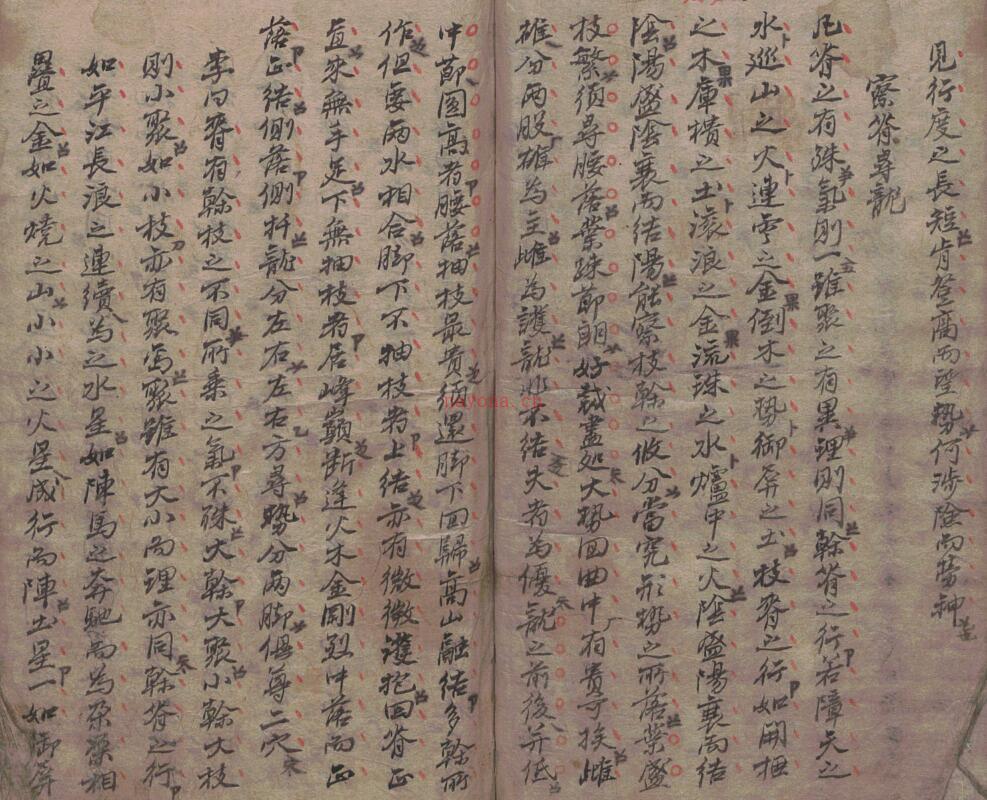 見行度之長短肯登高而望勢何涉險而勞神
察脊尋龍
凡脊之有殊氣則一雖聚之有異理則同幹脊之行若障天之
水巡山之火連雲之金倒木之勢御屏之土枝脊之行如開
之木庫櫃之土滾浪之金流珠之水爐中之火陰盛陽衰而結
陰陽盛陰衰而結陽能察枝幹之收分當究形勢之所落葉盛
枝繁須尋腰落葉踈節朗好裁盡処大勢回曲中有貴可挨雌
雄分兩股雄為主雌為護龍逆不結失者為優龍之前後并低
中節圓高者腰落抽枝最貴須還脚下回歸高山融結多幹所
作但要兩水相合脚下不抽枝者上結亦有微微護抱回脊正
直來無手足下無抽枝者居峰巔斷逢火木金剛烈中落而正
落正結側落側扦龍分左右左右方尋勢分兩脚俱尊二穴
李曰脊有幹枝之不同所乘之氣不殊大幹大聚小幹大枝
則小聚如小枝亦有聚寫聚雖有大小而理亦同幹脊之行
如平江長浪之連續為之水星如陣馬之奔馳而為相
疊之金如火燒之山小小之火星成行而陣土星一如御屏
nayona.cn